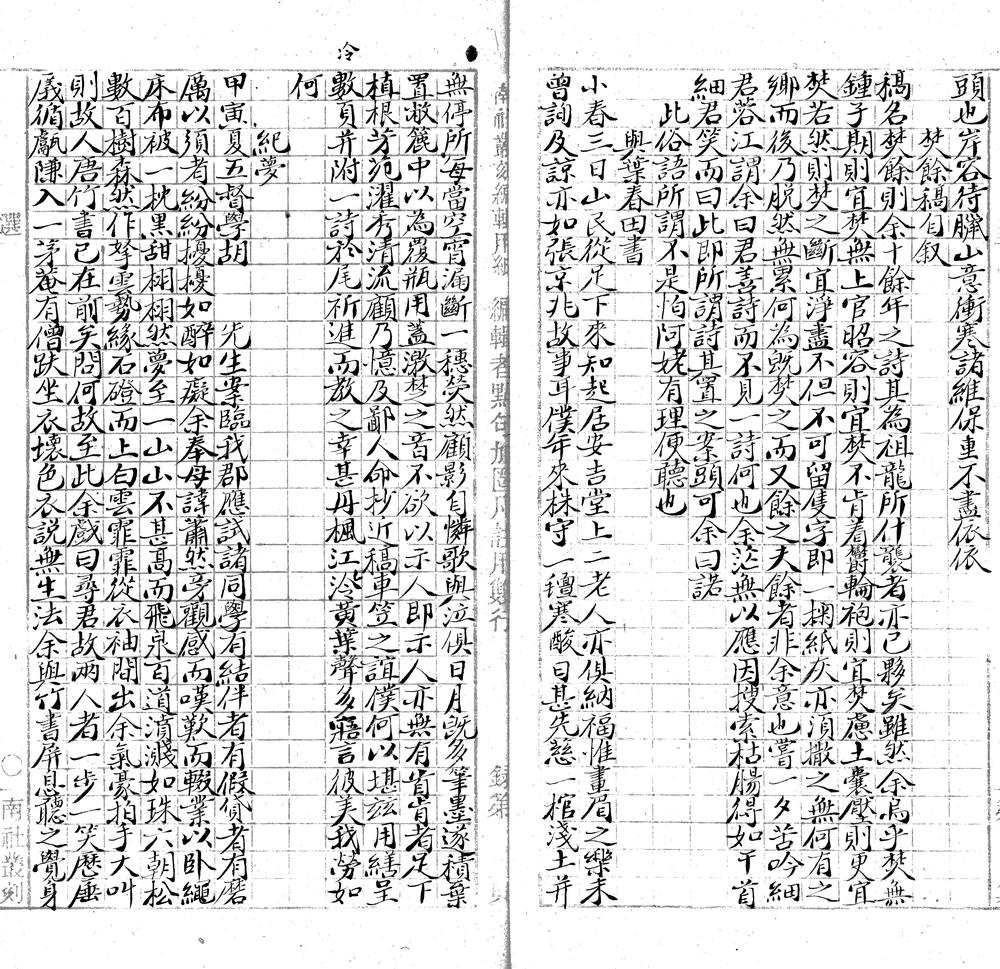 頭也岸容待臘山意衝寒諸維保重不盡依依
焚餘稿自叙
稿名焚餘則余十餘年之詩其為祖龍所什襲者亦已夥矣雖然余烏乎焚無
鍾子期則宜焚無上官昭容則宜焚不肯着鬱輪袍則宜焚慮土囊壓則更宜
焚若然則焚之斷宜淨盡不但不可留隻字即一掬紙灰亦須撒之無何有之
鄉而後乃脫然無累何為既焚之而又餘之夫餘者非余意也嘗一夕苦吟細
君蓉江謂余曰君善詩而不見一詩何也余茫無以應因搜索枯腸得如干首
細君笑而曰此即所謂詩其置之案頭可余曰諾
此俗語所謂不是怕阿姥有理便聽也
與葉春田書
小春三日山民從足下來知起居安吉堂上二老人亦俱納福惟畫眉之樂未
曾詢及諒亦如張京兆故事耳僕年來株守一氊寒酸日甚先慈一棺淺土并
冷
無停所每當空宵漏斷一穗熒然顧影自憐歌與泣俱日月既多筆墨遂積棄
置敝簏中以為覆瓶用蓋激楚之音不欲以示人即示人亦無有肯肯者足下
植根芳苑濯秀清流顧乃憶及鄙人命抄近稿車笠之誼僕何以堪玆用繕呈
數頁并附一詩於尾祈進而教之幸甚丹楓江冷黃葉聲多寤言彼美我勞如
何
紀夢
甲寅夏五督學胡　先生案臨我郡應試諸同學有結伴者有假貸者有磨
厲以須者紛紛擾擾如醉如癡余奉母諱蕭然旁觀感而嘆歎而輟業以臥繩
床布被一枕黑甜栩栩然夢至一山山不甚高而飛泉百道濆濺如珠六朝松
數百樹森然作拏雲勢緣石磴而上白雲霏霏從衣袖間出余氣豪拍手大叫
則故人唐竹書已在前矣問何故至此余戲曰尋君故兩人者一步一笑歷厜
㕒循巘隒入一茅菴有僧趺坐衣壞色衣説無生法余與竹書屏息聽之覺身
南社叢刻編輯用紙
編輯者點句加圈只許用雙行
錄第
頁
選
〇
南社叢刻